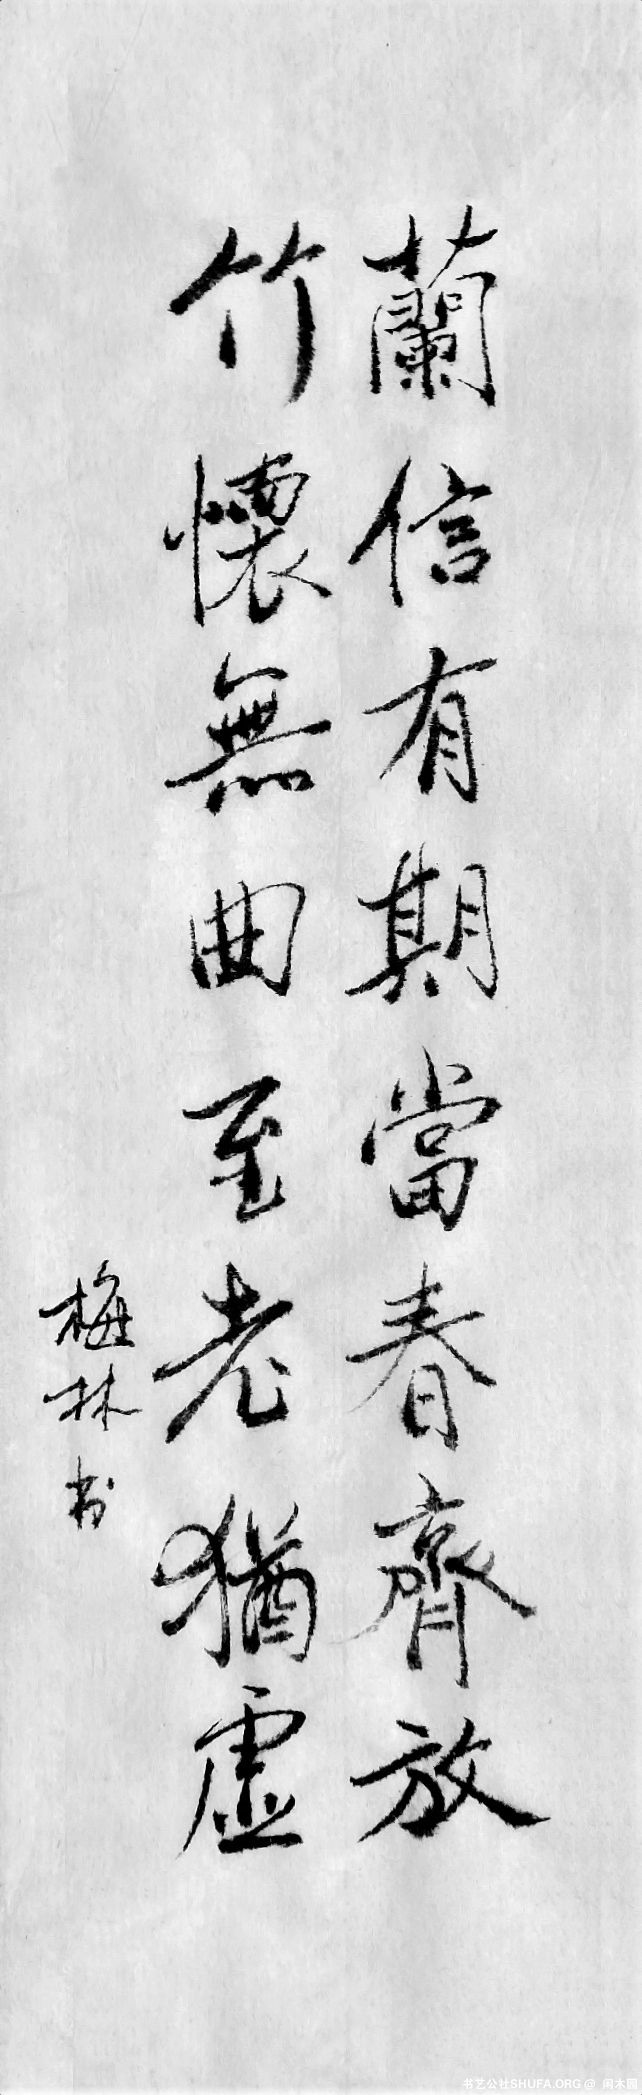 蘭信有期當春齊放
竹懷無曲至老猶虛
梅林书
书艺公社SHUFA.ORG @ 闲木园